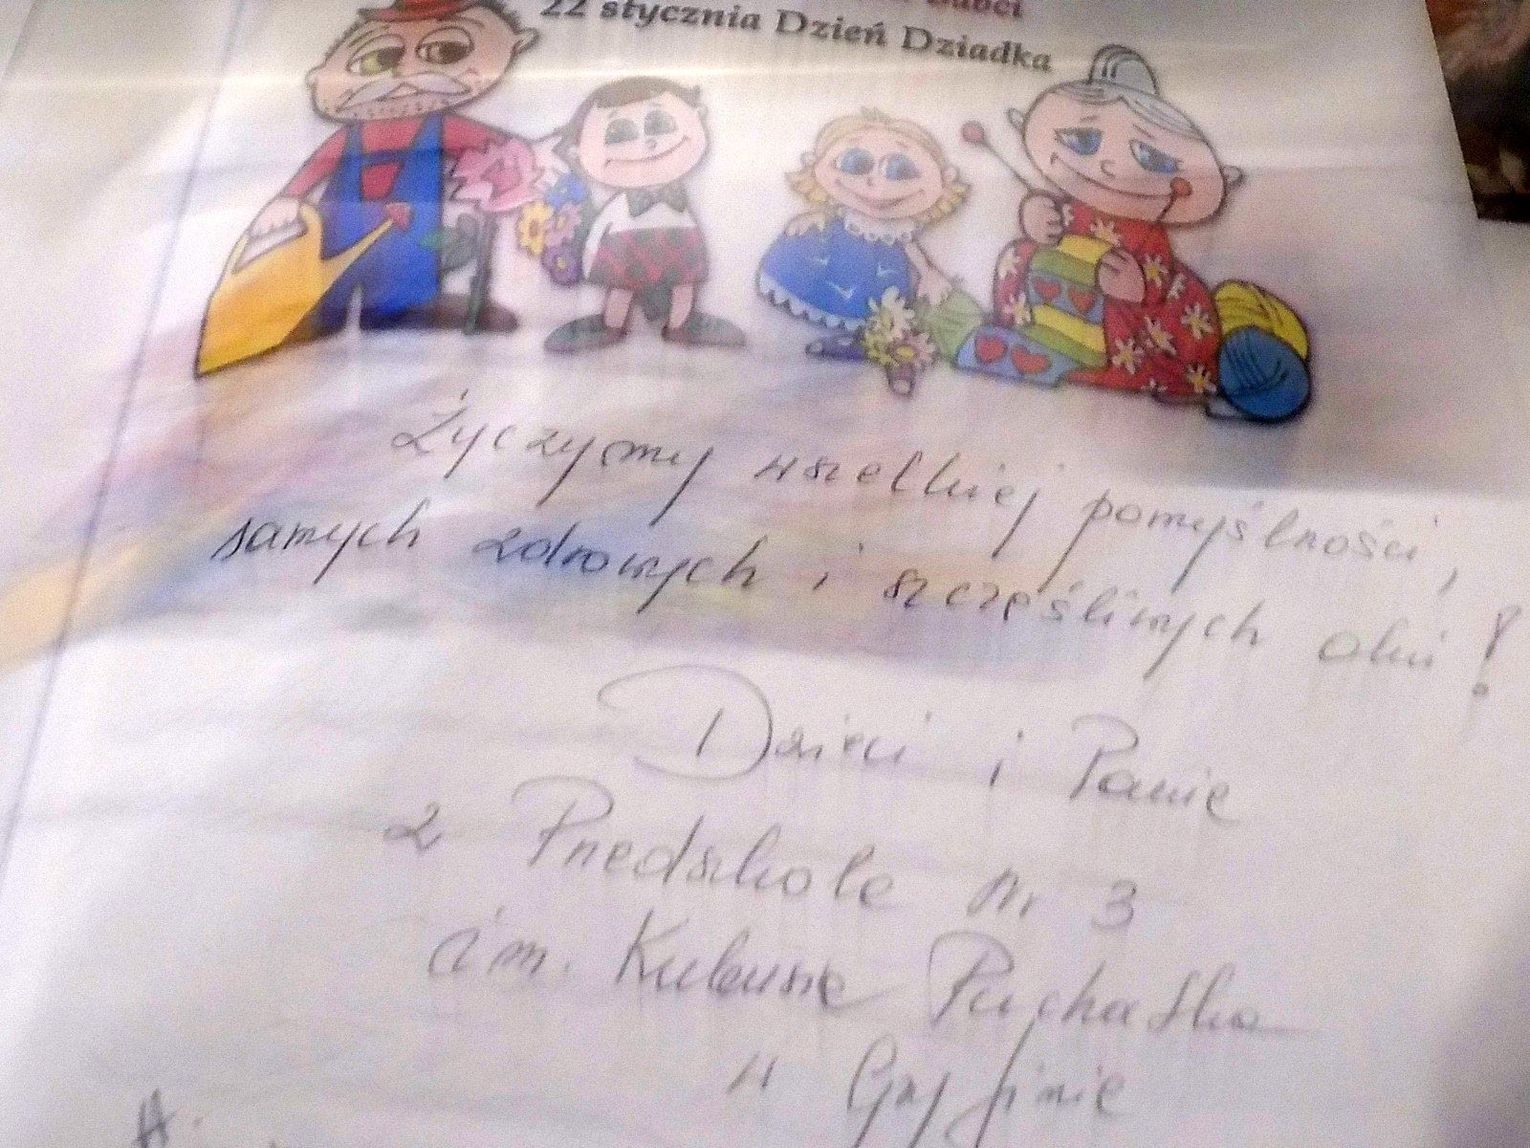 Babci
22 stycznia Dzień Dziadka
Życzymy wszelkiej pomyślności,
samych zdrowych i szczęśliwych dni!
Dzieci i Panie
z Przedszkole Nr 3
im. Kubusia Puchatka
w Gryfinie
A.